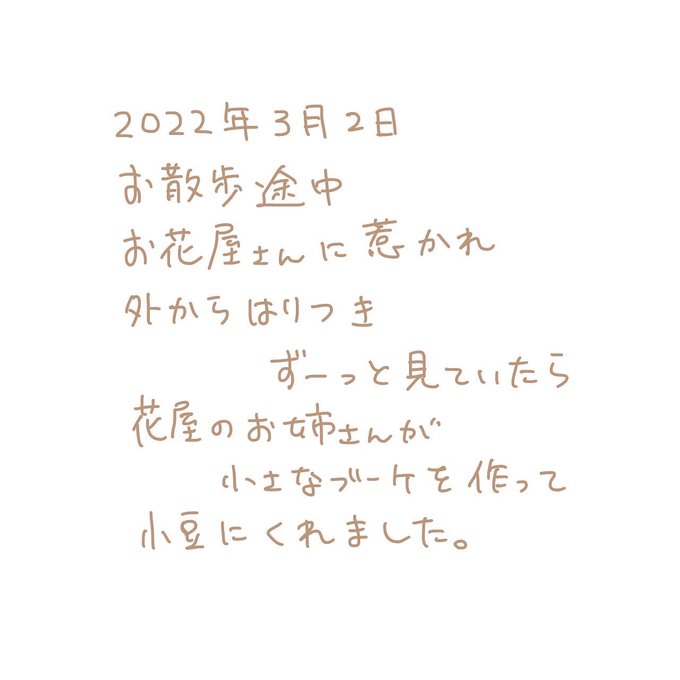 2022年3月2日
お散歩途中
お花屋さんに惹かれ
外からはりつき
ずーっと見ていたら
花屋のお姉さんが
小さなブーケを作って
小豆にくれました。